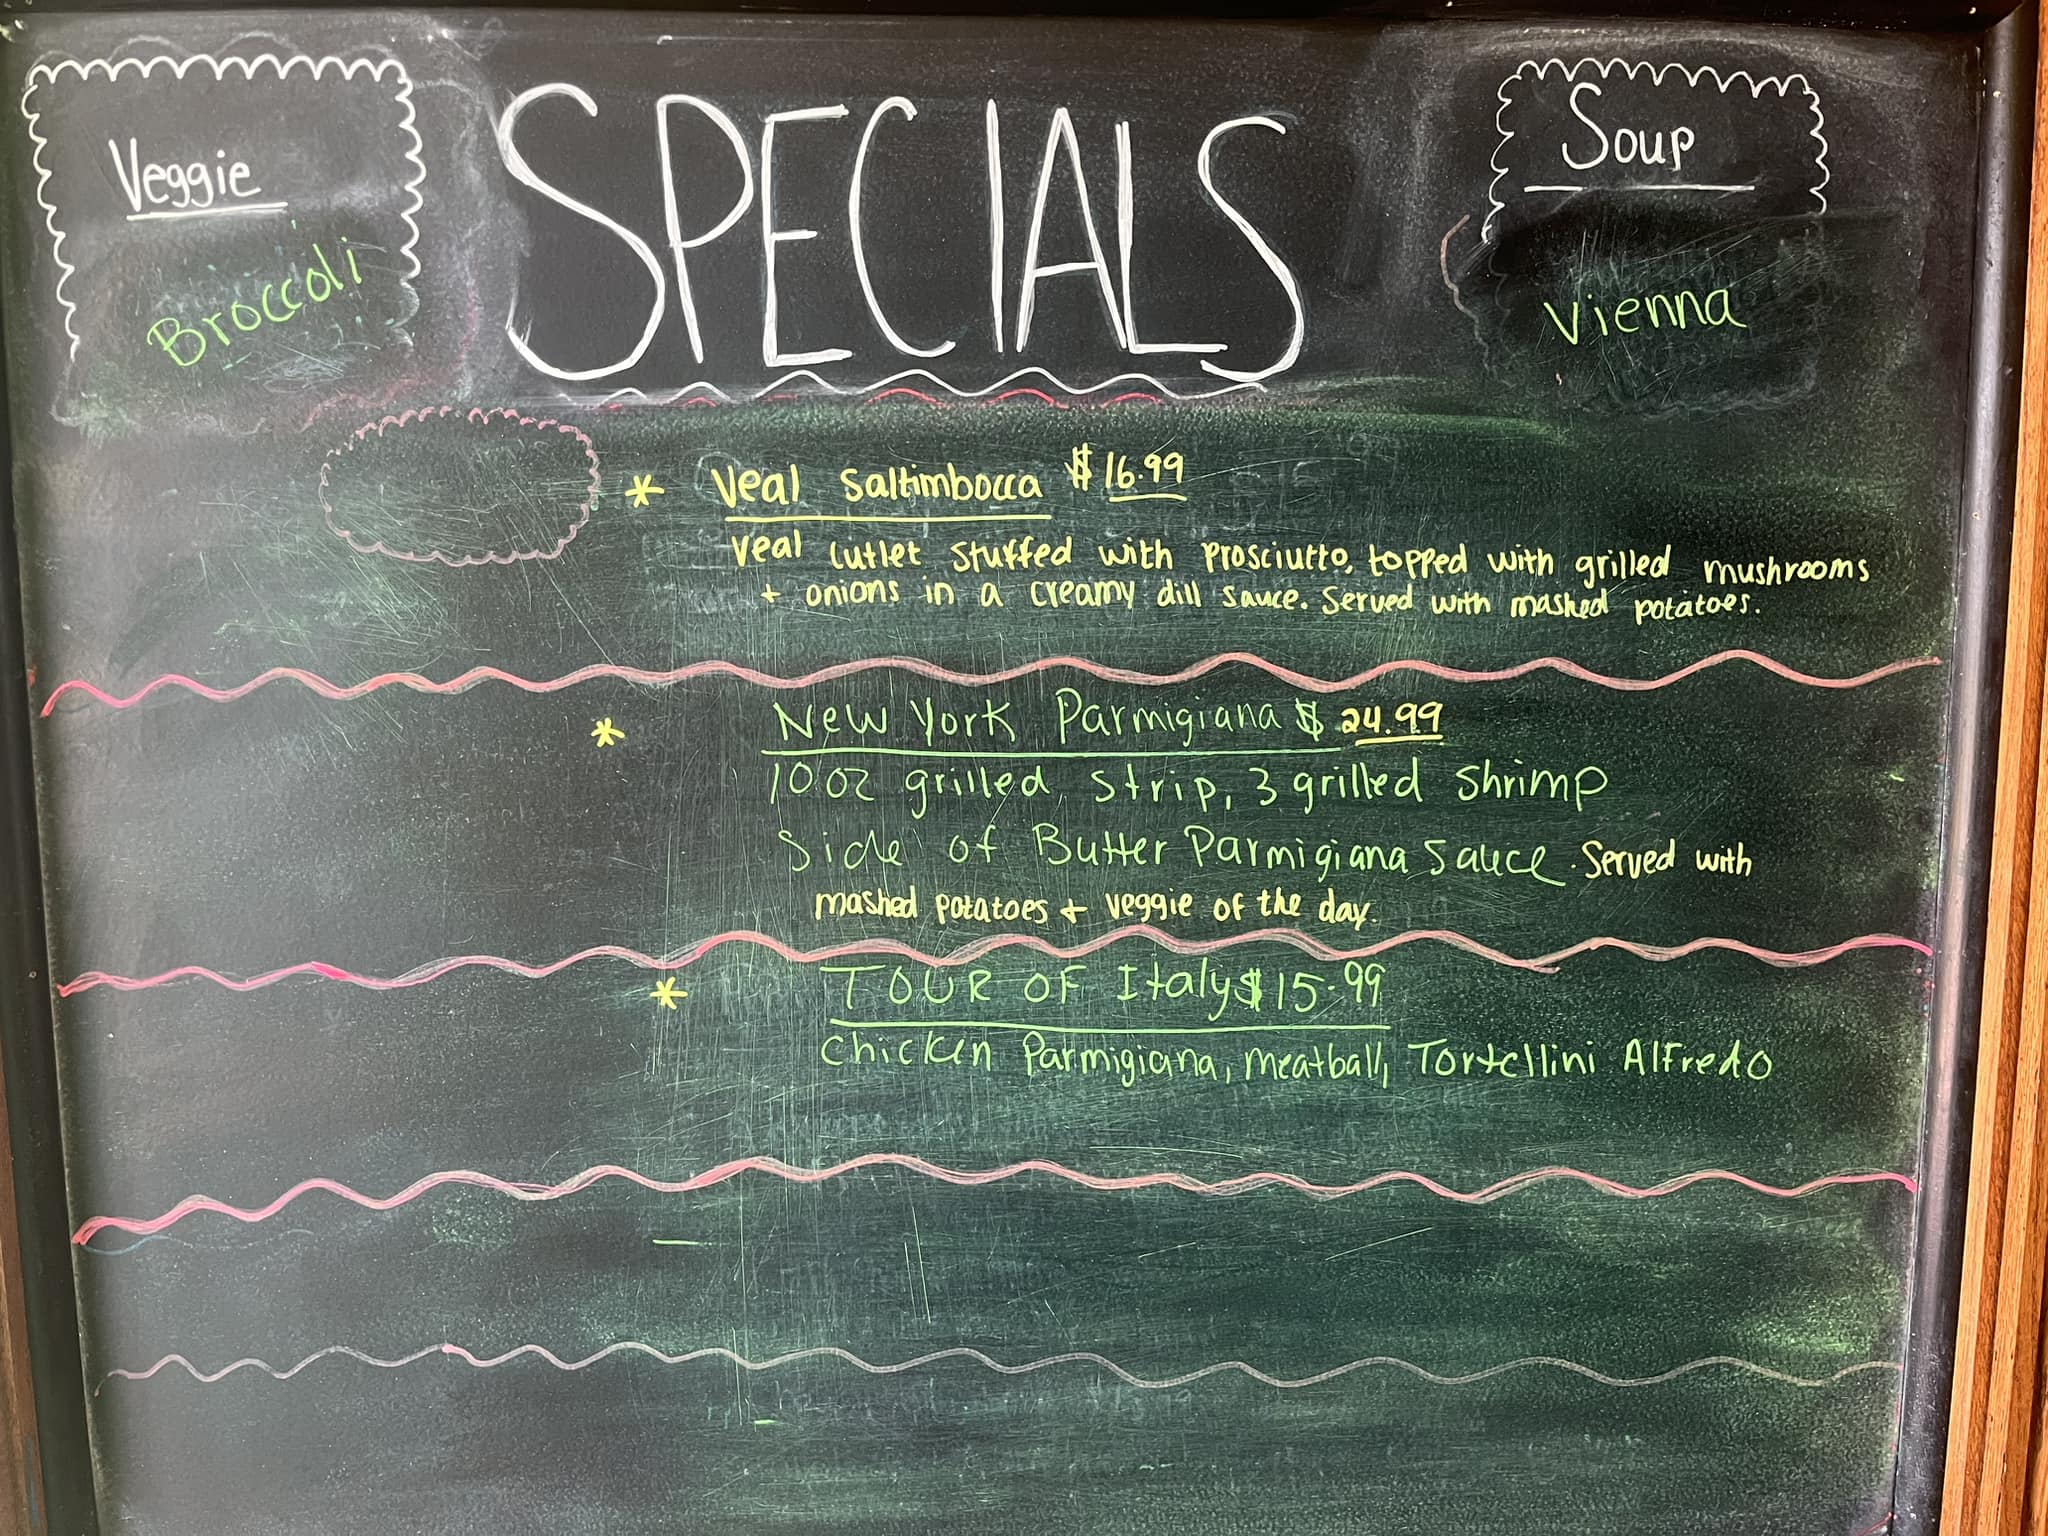 Veggie
Broccoli
SPECIALS
Soup
Vienna
* Veal Saltimbocca $16.99
Veal Cutlet stuffed with Prosciutto, topped with grilled mushrooms
+ onions in a creamy dill sauce. Served with mashed potatoes.
* New York Parmigiana $24.99
10oz grilled strip, 3 grilled shrimp
side of Butter Parmigiana Sauce. Served with
mashed potatoes + veggie of the day.
* TOUR OF Italy $15.99
Chicken Parmigiana, meatball, Tortellini Alfredo